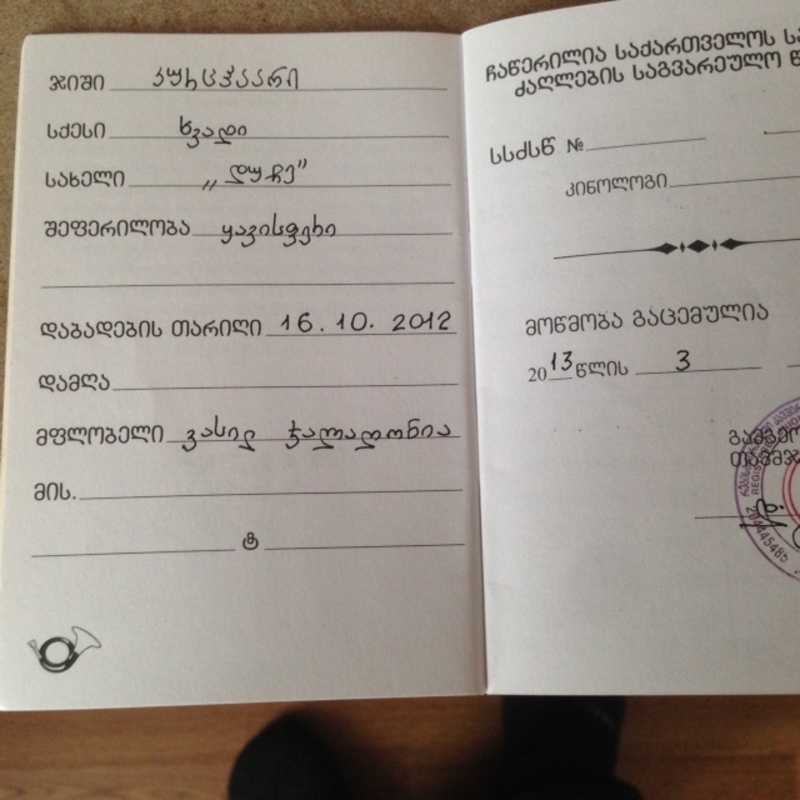 ჯიში კურცჰაარი
სქესი ხვადი
სახელი „დუჩე”
შეფერილობა ყავისფერი
დაბადების თარიღი 16.10.2012
დამღა
მფლობელი ვასილ ჭალაღონია
მის.
ტ
ჩაწერილია საქართველოს
ძაღლების საგვარეულო
სსძსწ №
კინოლოგი
მოწმობა გაცემულია
2013 წლის 3
204445485